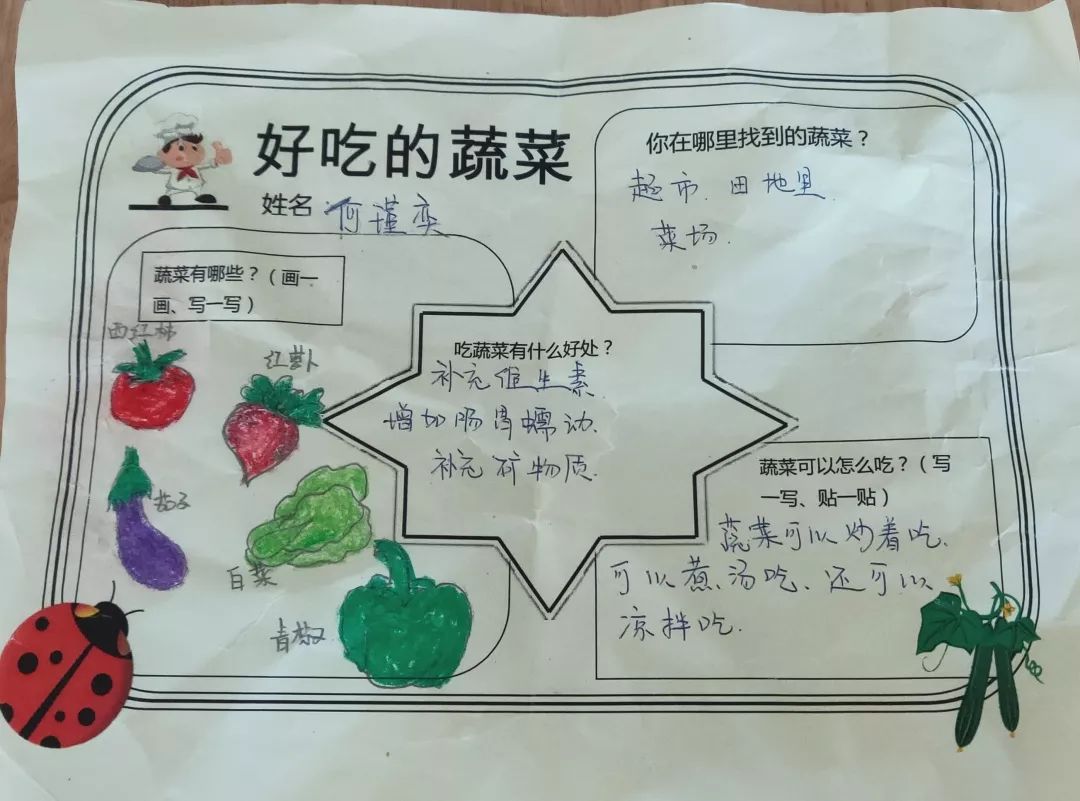 好吃的蔬菜
姓名 何瑾奕
你在哪里找到的蔬菜？
超市、田地里、
菜场、
蔬菜有哪些？（画一
画、写一写）
西红柿
红萝卜
茄子
白菜
青椒
吃蔬菜有什么好处？
补充维生素、
增加肠胃蠕动、
补充矿物质.
蔬菜可以怎么吃？（写
一写、贴一贴）
蔬菜可以炒着吃、
可以煮汤吃、还可以
凉拌吃.